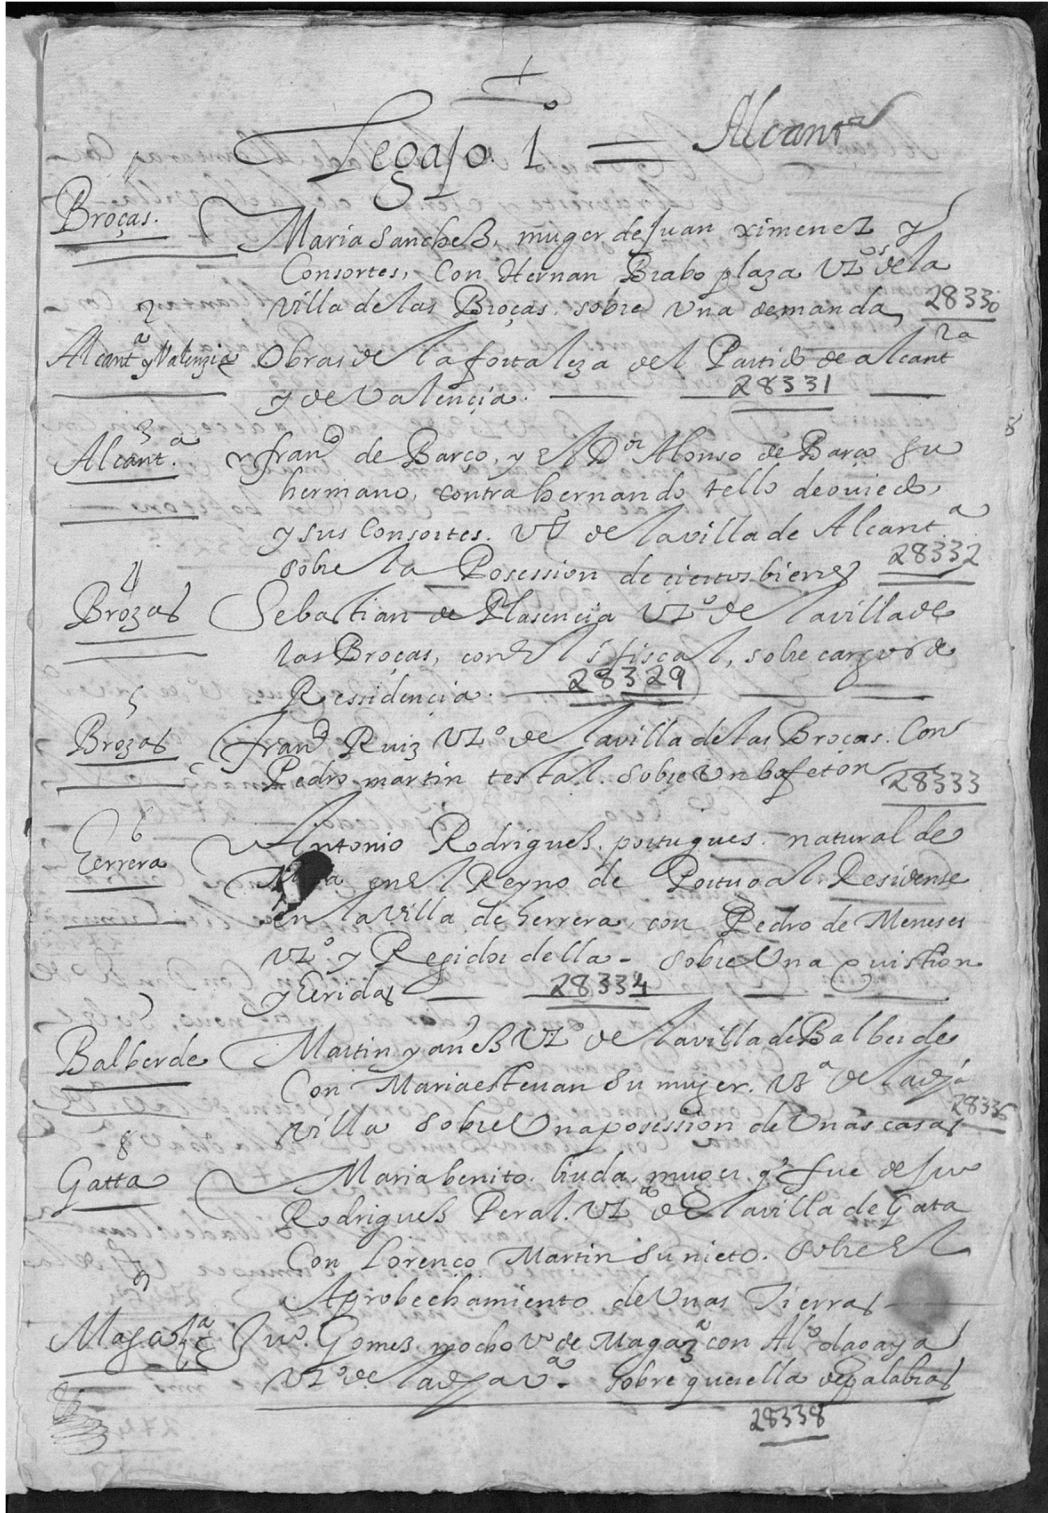 Legajo. 1º = Alcantª
1
Broças.
Maria Sanchez, muger de Juan ximenez y
Consortes, Con Hernan Brabo plaza vzºs de la
villa de las Broças. sobre Una demanda, 28330
2
Alcantª y Valenzia
Obras de la fortaleza del Partido de alcantrª
y de Valençia. 28331
3
Alcant.ª
franco de Barco, y El Dor Alonso de Barco Su
hermano, contra hernando tello de oviedo,
y sus Consortes. vº de la villa de Alcant.ª
Sobre la Posession de ciertos bienes 28332
4
Brozas
Sebastian de Plasençia vzº de la villa de
las Broças, con El s fiscal, sobre cargos de
Ressidençia. 28329
5
Brozas
franco Ruiz vzº de la villa de las Broças. Con
Pedro martin testal. Sobre Un bofeton 28333
6
Herrera
Antonio Rodrigues. portugues. natural de
en El Reyno de Portugal Residente
en la Villa de herrera, con Pedro de Meneses
vzº. y Regidor della - Sobre Una quistion
y heridas 28334
7
Balberde
Martin yanes vzº de la villa de Balberde
Con Maria estevan Su mujer. vª de la dja
villa Sobre Una posession de Unas casas 28335
8
Gatta
Maria benito. biuda, muger qe fue de Juº
Rodrigues Peral. vzª de la villa de Gata
Con Lorenço Martin Su nieto. Sobre El
Aprobechamiento de Unas Tierras
9
Magasª
Juº. Gomes mocho vº de Magazª con Alº
vzº de la dja vª - Sobre querella de palabras
28338